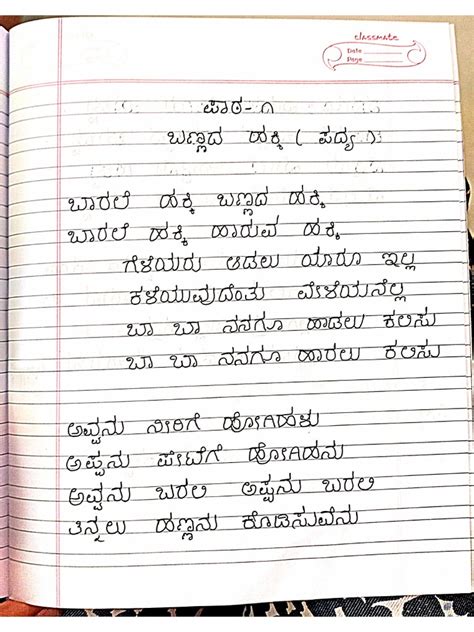 classmate
Date
Page
ಪಾಠ-೧
ಬಣ್ಣದ ಹಕ್ಕಿ ( ಪದ್ಯ )
ಬಾರಲೆ ಹಕ್ಕಿ ಬಣ್ಣದ ಹಕ್ಕಿ
ಬಾರಲೆ ಹಕ್ಕಿ ಹಾರುವ ಹಕ್ಕಿ
ಗೆಳೆಯರು ಆಡಲು ಯಾರೂ ಇಲ್ಲ
ಕಳೆಯುವುದೆಂತು ವೇಳೆಯನೆಲ್ಲ
ಬಾ ಬಾ ನನಗೂ ಹಾಡಲು ಕಲಿಸು
ಬಾ ಬಾ ನನಗೂ ಹಾರಲು ಕಲಿಸು
ಅವ್ವನು ನೀರಿಗೆ ಹೋಗಿಹಳು
ಅಪ್ಪನು ಪೇಟೆಗೆ ಹೋಗಿಹನು
ಅವ್ವನು ಬರಲಿ ಅಪ್ಪನು ಬರಲಿ
ತಿನ್ನಲು ಹಣ್ಣನು ಕೊಡಿಸುವೆನು